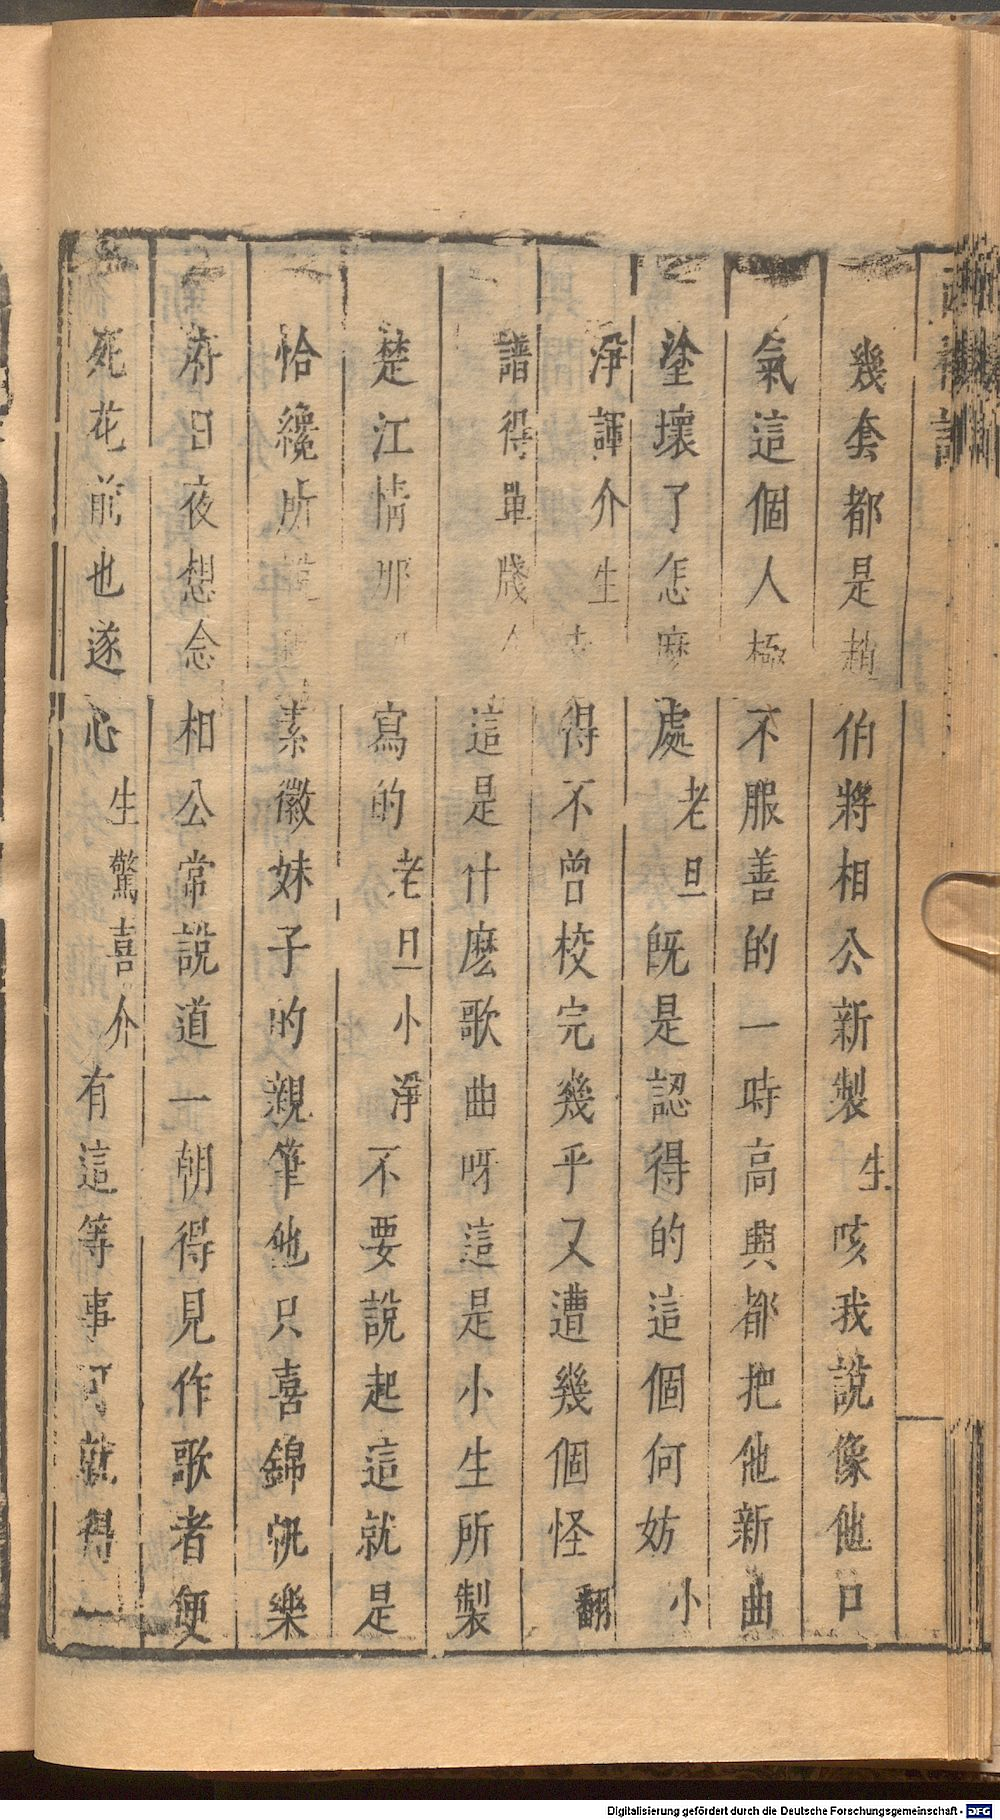 幾套都是趙伯將相公新製生咳我說像他口
氣這個人極不服善的一時高興都把他新曲
塗壞了怎麼處老旦旣是認得的這個何妨小
淨諢介生去得不曾校完幾乎又遭幾個怪翻
譜得單牋介這是什麽歌曲呀這是小生所製
楚江情那寫的老旦小淨不要說起這就是
恰纔所說素徽妹子的親筆他只喜錦帆樂
府日夜想念相公常說道一朝得見作歌者便
死花前也遂心生驚喜介有這等事可就得一
Digitalisierung gefördert durch die Deutsche Forschungsgemeinschaft - DFG